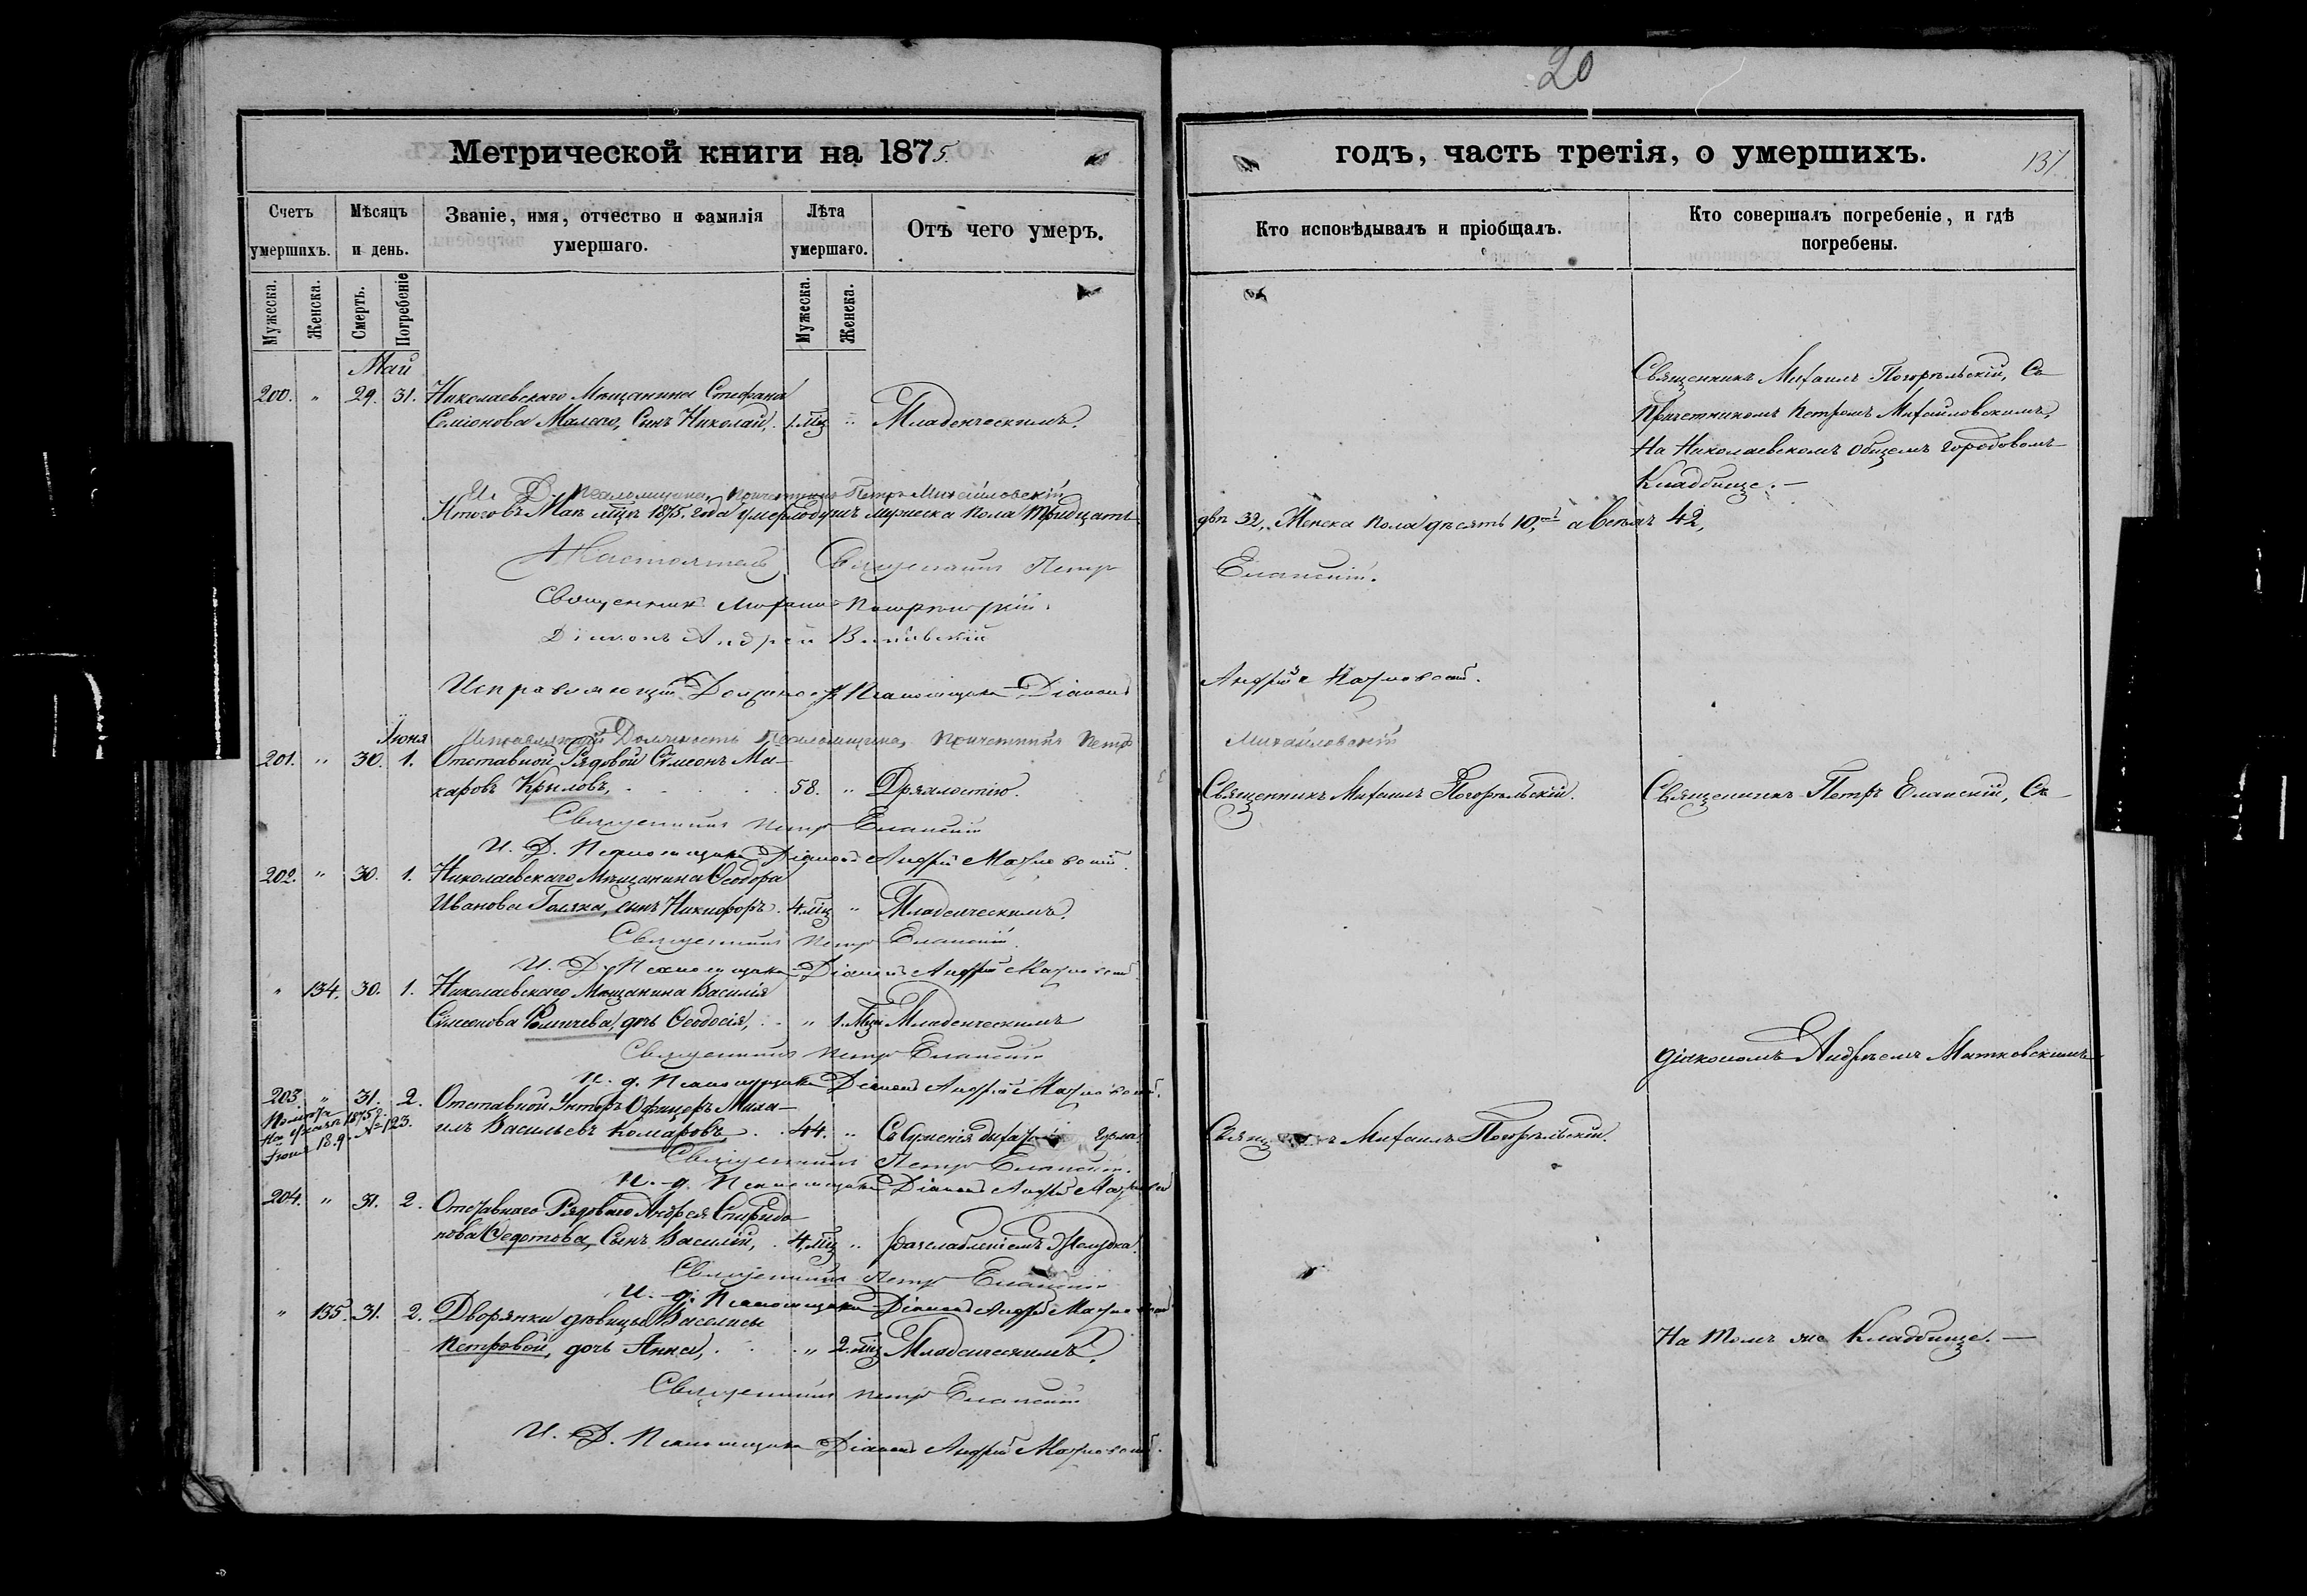 20
Метрической книги на 1875.
годъ, часть третія, о умершихъ.
137
Счетъ умершихъ.
Мѣсяцъ и день.
Званіе, имя, отчество и фамилія умершаго.
Лѣта умершаго.
Отъ чего умеръ.
Кто исповѣдывалъ и пріобщалъ.
Кто совершалъ погребеніе, и гдѣ погребены.
Мужеска.
Женска.
Смерть.
Погребеніе
Мужеска.
Женска.
Май
200. " 29. 31. Николаевскаго Мѣщанина Стефана
Семіонова Малаго, Сынъ Николай, 1.мц " Младенческимъ.
Священникъ Михаилъ Погорѣльскій, Съ
Причетникомъ Петромъ Михайловскимъ,
На Николаевскомъ общемъ городовомъ
Кладбище. —
И. Д. Псаломщика, Причетникъ Петръ Михайловскій
Итогъ въ Маѣ мцѣ 1875. года умерло душъ мужеска пола тридцать
двѣ 32, Женска пола десять 10, а всѣхъ 42,
Настоятель Священникъ Петръ
Еланскій.
Священникъ Михаилъ Погорѣльскій.
Діаконъ Андрей
Исправляющій Должность Псаломщика Діаконъ
Андрей Матковскій.
Іюня
Исправляющій Должность Псаломщика, Причетникъ Петръ
Михайловскій
201. " 30. 1. Отставной Рядовой Симеонъ Ма-
каровъ Крыловъ, 58. " Дряхлостію.
Священникъ Михаилъ Погорѣльскій.
Священникъ Петръ Еланскій, Съ
Священникъ Петръ Еланскій
И. Д. Псаломщика Діаконъ Андрей Матковскій.
202. " 30. 1. Николаевскаго Мѣщанина Ѳеодора
Иванова Галяка, сынъ Никифоръ. 4.мц " Младенческимъ.
Священникъ Петръ Еланскій.
И. Д. Псаломщика Діаконъ Андрей Матковскій
" 134. 30. 1. Николаевскаго Мѣщанина Василія
Симеонова дочь Ѳеодосія, " 1.мца Младенческимъ
Священникъ Петръ Еланскій
діакономъ Андреемъ Матковскимъ
И. д. Псаломщика Діаконъ Андрей Матковскій.
203. " 31. 2. Отставной Унтеръ Офицеръ Миха-
илъ Васильевъ Комаровъ 44. " Съуженія дыхат горла.
1875 г.
Іюня 18. № 123.
Священникъ Михаилъ Погорѣльскій.
Священникъ Петръ Еланскій.
И. д. Псаломщика Діаконъ Андрей Матковскій
204. " 31. 2. Отставнаго Рядоваго Андрея Спиридо
нова Ѳедотова, Сынъ Василій, 4.мц " разслабленіемъ Желудка.
Священникъ Петръ Еланскій
И. д. Псаломщика Діаконъ Андрей Матковскій
" 135. 31. 2. Дворянки дѣвицы Василисы
Петровой, дочь Анна, " 2.мц Младенческимъ.
На томъ же Кладбище. —
Священникъ Петръ Еланскій
И. Д. Псаломщика Діаконъ Андрей Матковскій.